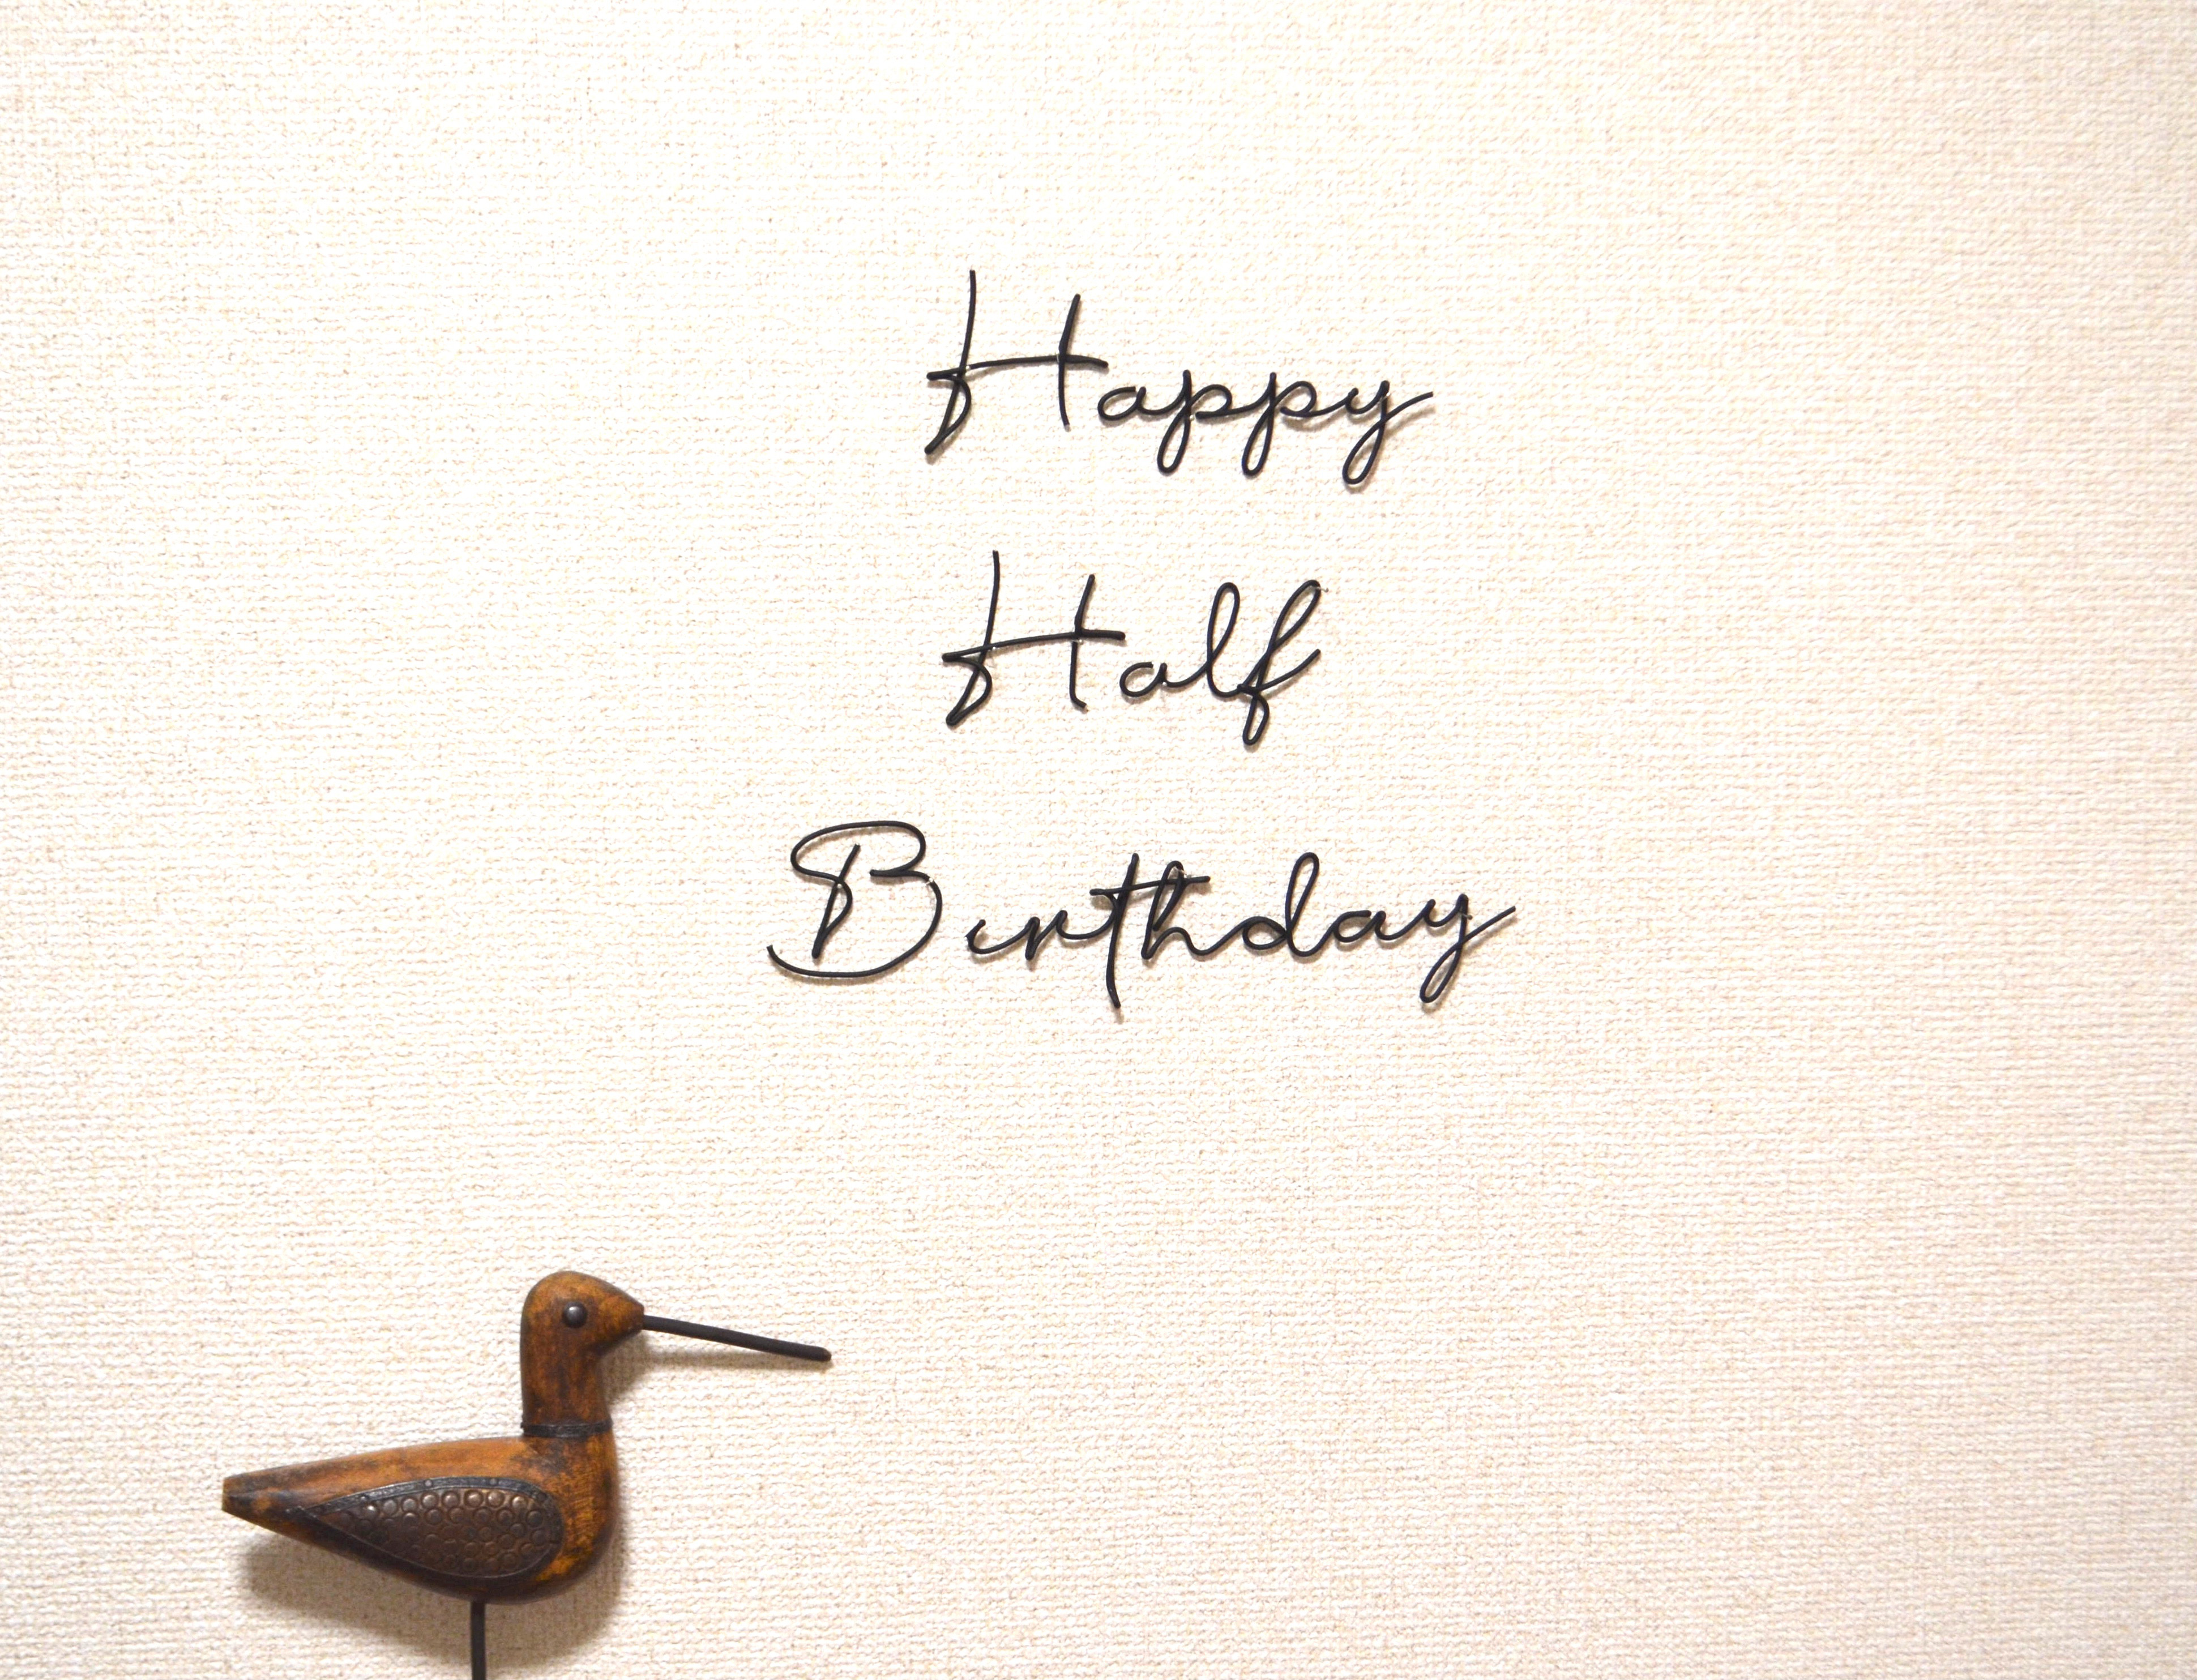 Happy
Half
Birthday